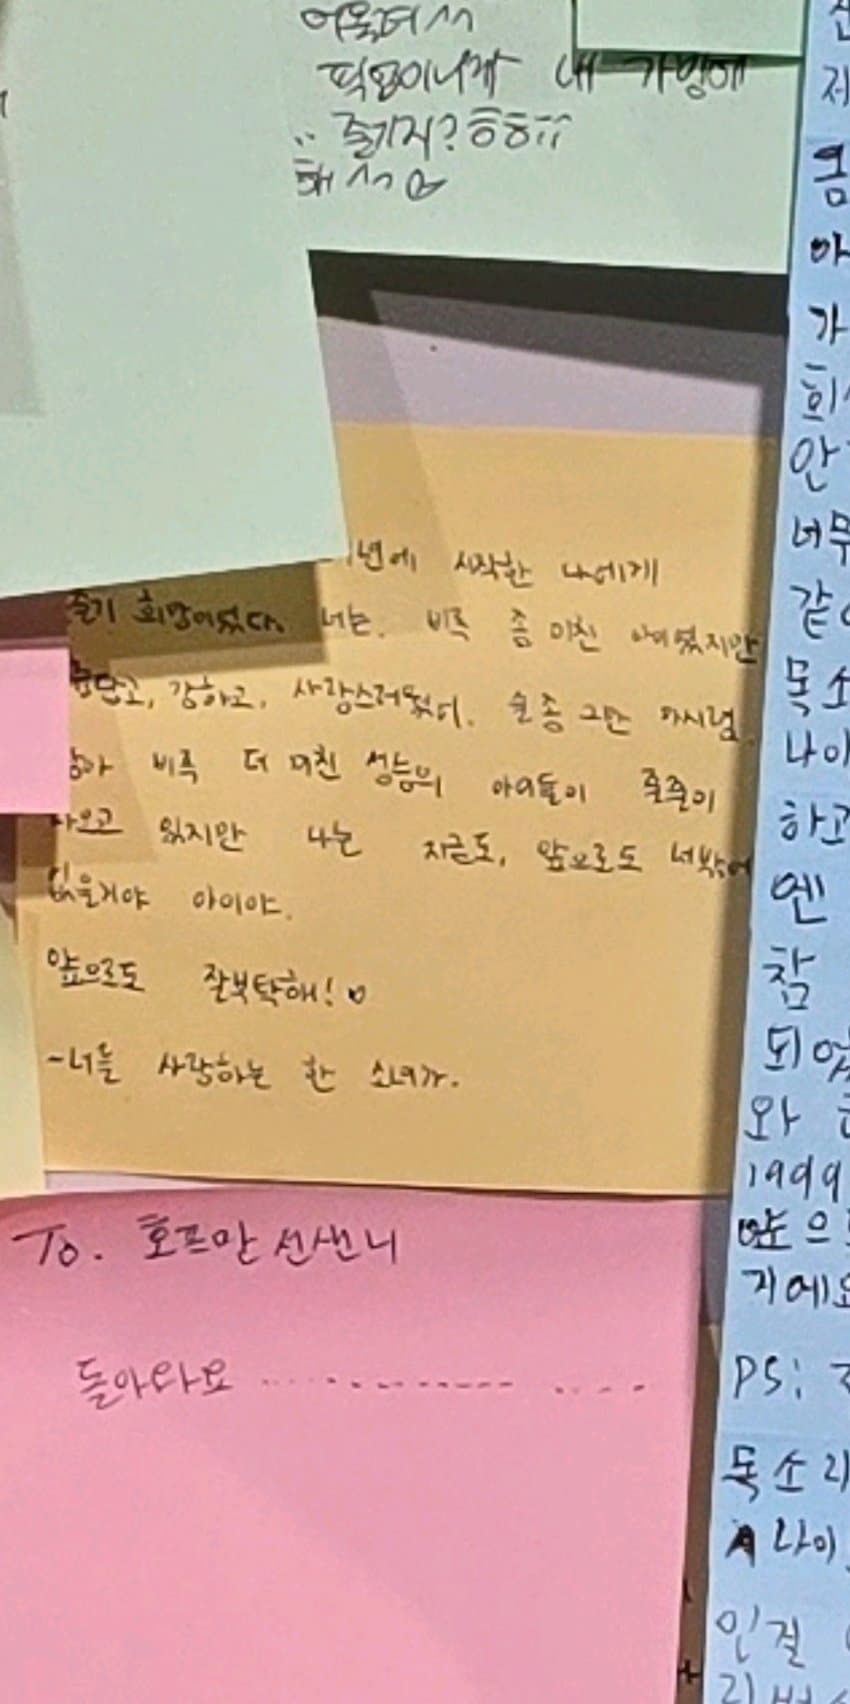 픽업이니까 내 가방에
즐기지? ㅎㅎ
해 ^^
년에 시작한 나에게
줄기 희망이었다. 너는. 비록 좀 미친 아이였지만
강하고, 사랑스러웠어. 술 좀 그만 마시렴.
비록 더 미친 성능의 아이들이 줄줄이
나오고 있지만 나는 지금도, 앞으로도 너밖에
없을거야 아이야.
앞으로도 잘부탁해!♡
-너를 사랑하는 한 소녀가.
To. 호프만 선샌니
돌아와요
저
몸
아
가
희
안
너무
같
목소
나이
하고
엔
참
되었
와
1999
앞으로
거에요
PS:
목소리
나이
인걸